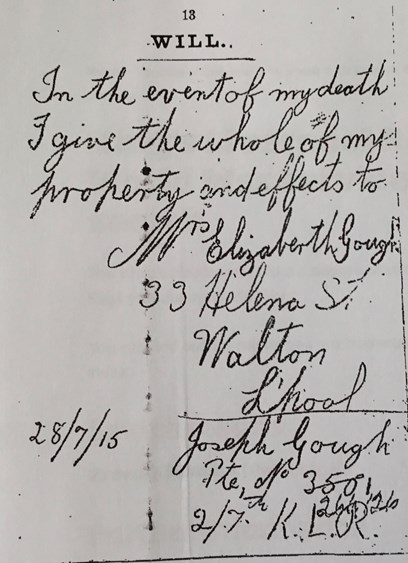 13
WILL.
In the event of my death
I give the whole of my
property and effects to
Mrs Elizaberth Gough
33 Helena St
Walton
L'pool
28/7/15
Joseph Gough
Pte, No 3501
2/7th K.L.R.